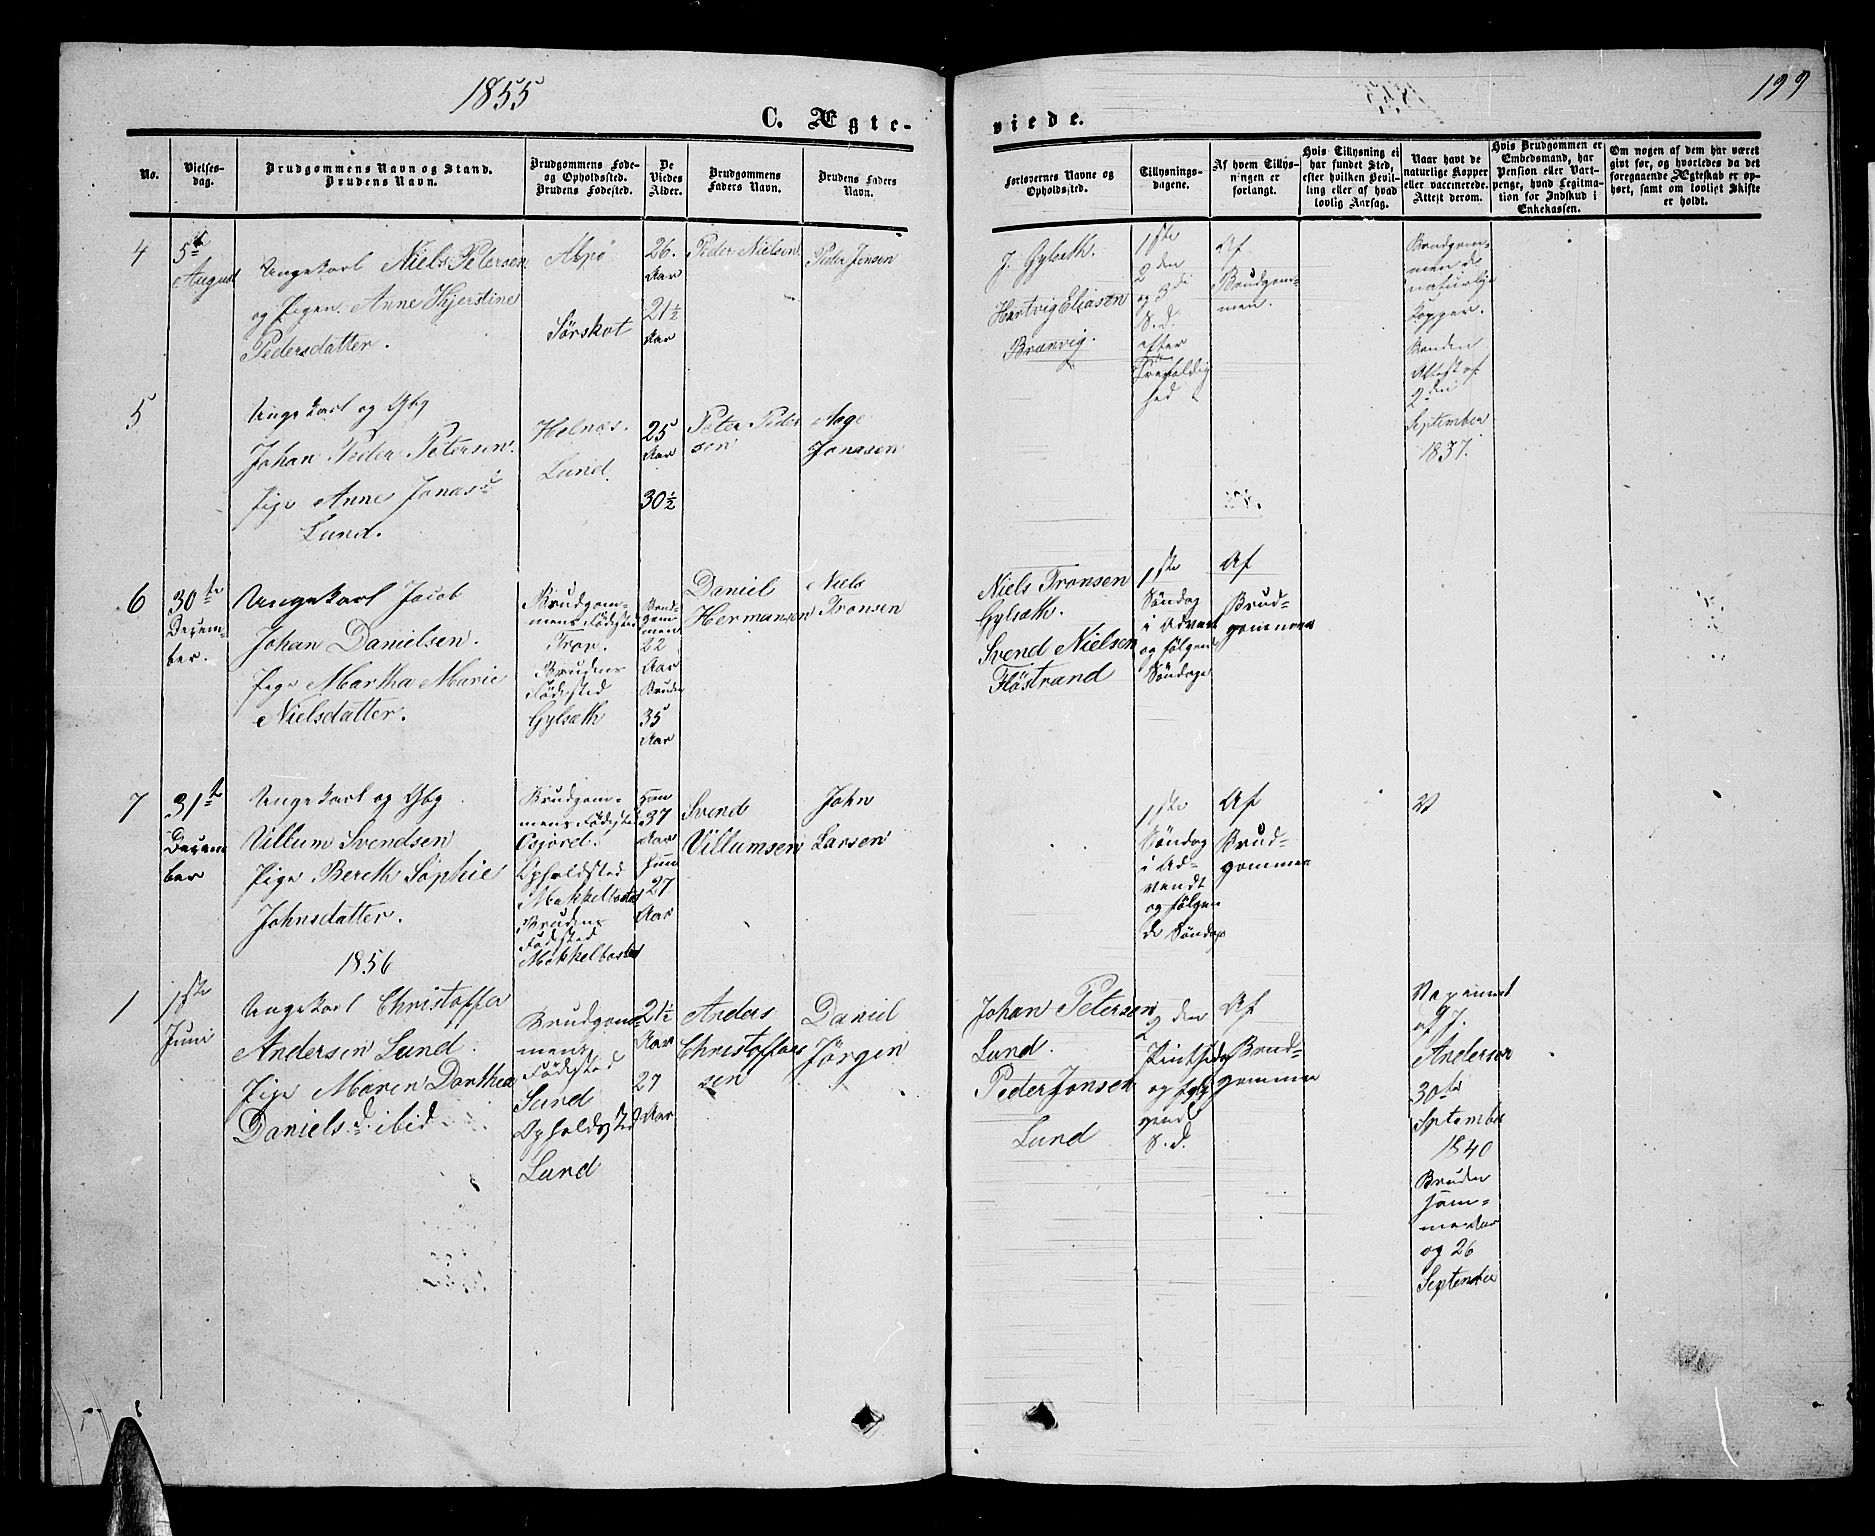 1855
199
C. Ægte-
viede.
No.
Vielses-
dag.
Brudgommens Navn og Stand.
Brudens Navn.
Brudgommens Føde-
og Opholdssted.
Brudens Fødested.
De
Viedes
Alder.
Brudgommens
Faders Navn.
Brudens Faders
Navn.
Forlovernes Navne og
Opholdssted.
Tillysnings-
dagene.
Af hvem Tillys-
ningen er
forlangt.
Hvis Tillysning ei
har fundet Sted,
efter hvilken Bevil-
ling eller af hvad
lovlig Aarsag.
Naar havt de
naturlige Kopper
eller vaccinerede.
Attest derom.
Hvis Brudgommen er
Embedsmand, har
Pension eller Vart-
penge, hvad Legitima-
tion for Indskud i
Enkekassen.
Om nogen af dem har været
givt før, og hvorledes da det
foregaaende Ægteskab er op-
hørt, samt om lovligt Skifte
er holdt.
4
5te
August
Ungekarl Niels Petersen
og Pigen Anne Kjerstine
Pedersdatter.
Alpø
Sørskot
26
Aar
21½
Aar
Peder Nielsen
Peder Jonsen
J. Gylseth.
Hartvig Eliasen
Brænvig.
1ste
2den
og 3di
S.d.
efter
Trefoldig
hed
Af
Brudgom-
men.
Brudgom-
men de
naturlige
Kopper.
Bruden
Attest af
2den
September
1837.
5
Ungekarl og Gbg
Johan Peder Petersen.
Pige Anne Jonasd
Lund.
Helnæs.
Lund.
25
Aar
30½
Peter Peder
sen
Aage
Jonasen
6
30te
Decem-
ber.
Ungekarl Jacob
Johan Danielsen.
Pige Martha Marie
Nielsdatter.
Brudgom-
mens Fødested
Brudens
Fødested
Gylseth
Brud-
gom-
men
22
Aar
Bruden
35
Aar
Daniel
Hermansen
Niels
Tronsen
Niels Tronsen
Gylseth.
Svend Nielsen
Fløstrand
1ste
Søndag
i Advent
og følgende
Søndage
Af
Brud-
gommen
7
31te
Decem
ber
Ungekarl og Gbg
Villum Svendsen
Pige Bereth Sophie
Johnsdatter.
Brudgom-
mens Fødested
Osjord.
Opholdsted
Mokkelbosted
Brudens
Fødested
Mokkelbosted
Han
37
Aar
Hun
27
Aar
Svend
Villumsen
John
Larsen
1ste
Søndag
i Ad-
vendt
og følgen
de Søndage
Af
Brud-
gommen
V
1856
1
1ste
Juni
Ungekarl Christoffer
Andersen Lund.
Pige Maren Dorthea
Danielsd. ibid
Brudgom-
mens
Fødested
Lund
Opholdsted
Lund
21½
Aar
27
Aar
Anders
Christoffer
sen
Daniel
Jørgen
Johan Petersen
Lund.
Peder Jonsen
Lund
2den
Pintsedag
og følg
gende
S.d.
Af
Brud-
gommen
Vaccineret
af J.
Andersen
30te
September
1840
Bruden
samme Aar
og 26
September